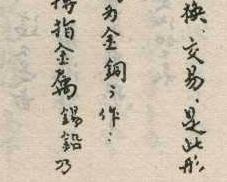 换、交易、是此形
为金铜之作：
指金属锡铅乃